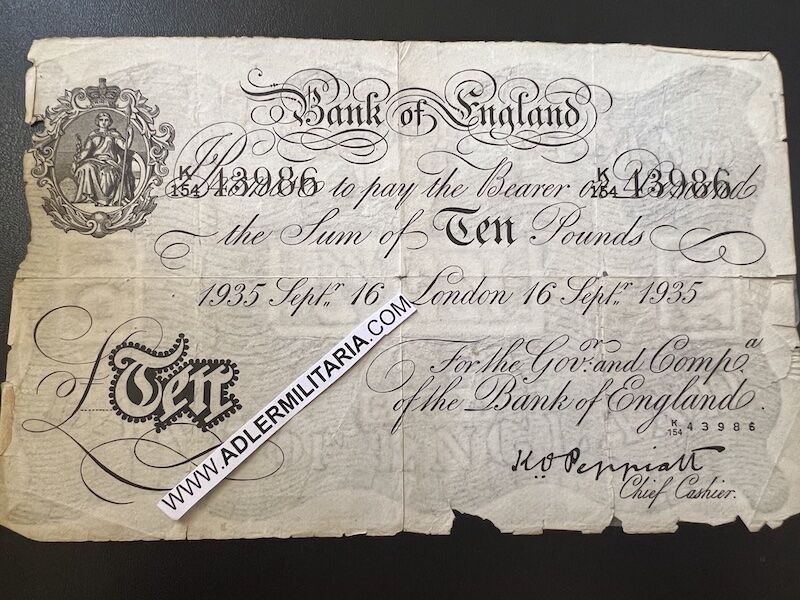 Bank of England
K 154 43986 I Promise to pay the Bearer on Demand K 154 43986
the Sum of Ten Pounds
1935 Septr. 16 London 16 Septr. 1935
For the Govr. and Compa.
£Ten
of the Bank of England.
K 154 43986
K.O. Peppiatt
Chief Cashier.
WWW.ADLERMILITARIA.COM